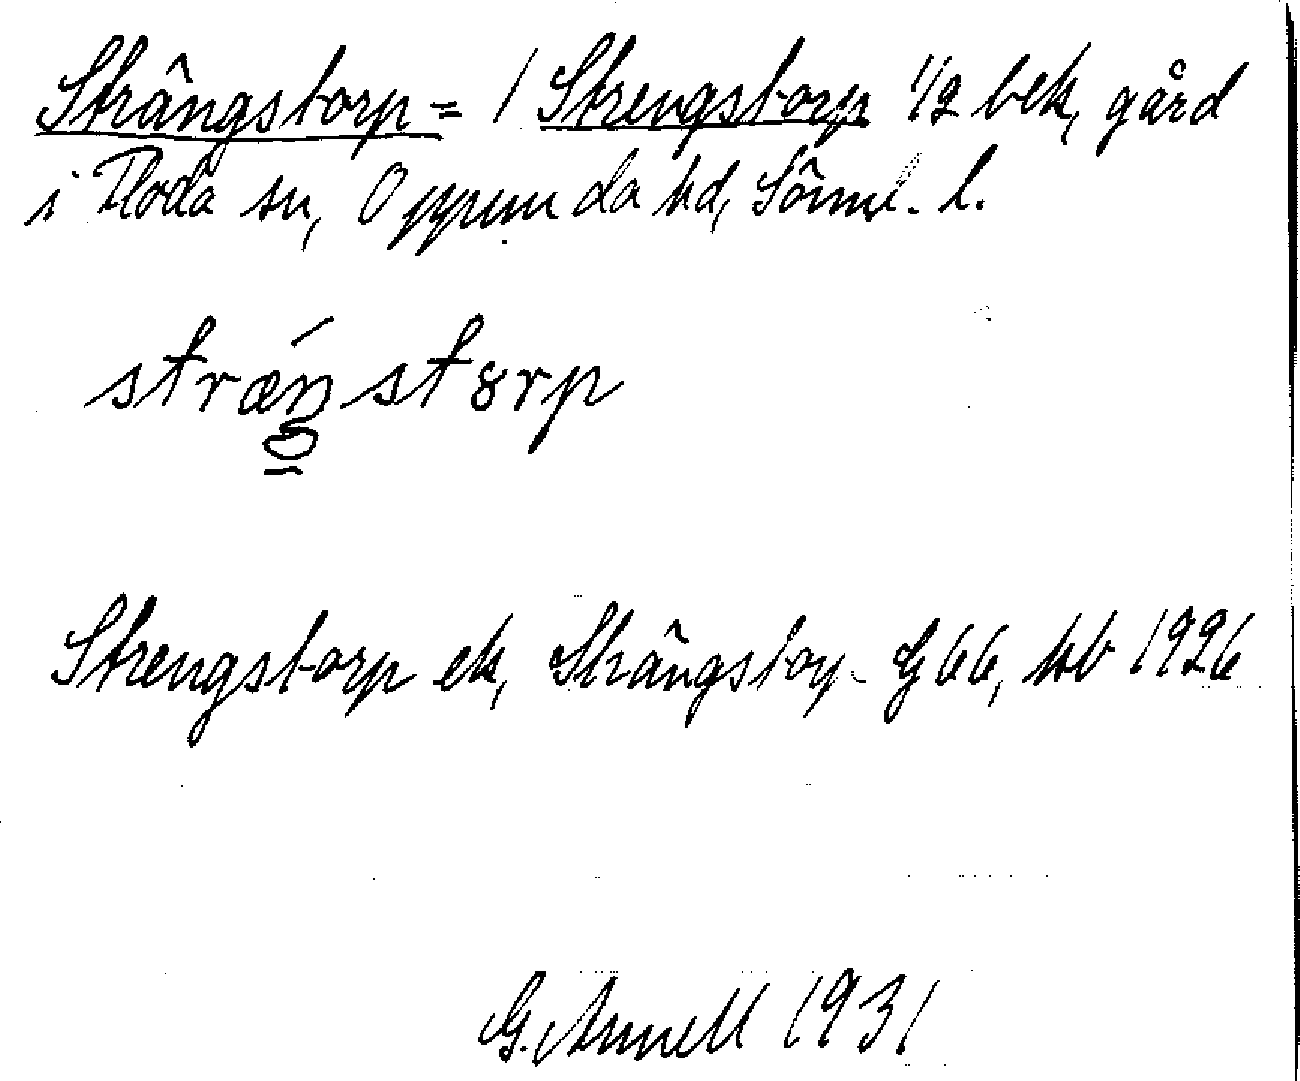 Strângstorp = / Strengstorp 1/2 bek, gård
i Floda sn, Oppunda hd, Sôrml. l.
stræŋstɤrp
Strengstorp ek, Strângstorp G 66, kb 1926
G. Annell 1931